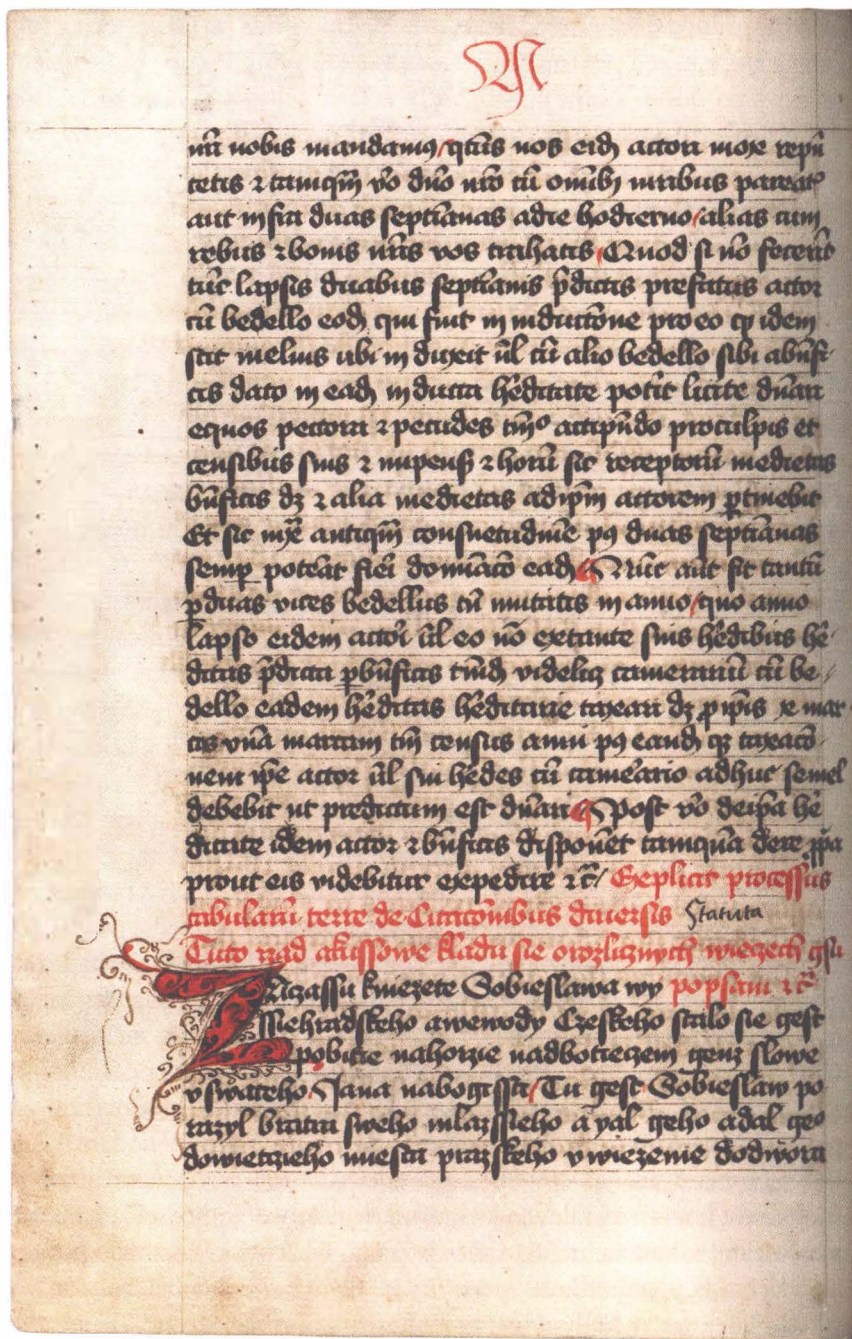 M
nri nobis mandamus / qtus vos eid actori mox repu
tetis ⁊ tamqm vo dno nro cu omib iuribus pareat
aut infra duas septianas a die hodierno / alias cum
rebus ⁊ bonis nris vos trahatis / Quod si no fecerit
tuc lapsis duabus septianis pdictis prefatus actor
cu bedello eod qui fuit in inductone pro eo q idem
scit melius ubi induxit ul cu alio bedello sibi a bnfi-
cis dato in ead inducta heditate potit licite dnari
equos peccora ⁊ pecudes tmo accipndo pro culpis et
censibus suis ⁊ inpens ⁊ horu sic receptoru medietas
bnficis dz ⁊ alia medietas ad ipm actorem ptinebit
Et sic iuxe antiqm consuetudine p9 duas septianas
semp poterat fiei dominaco ead Nuc aut fit tantu
p duas vices bedellus cu mutatis in anno / quo anno
lapso eidem actoi ul eo no extante suis hedibus he-
ditas pdicta p bnficis tmd videlicz camerariu cu be-
dello eadem heditas heditarie taxari dz p ipis xe mar-
cis vna marcam tm census annui p9 eand qz taxaco-
nem ipe actor ul sui hedes cu camerario adhuc semel
debebit ut predictum est dnari Post vo de ipa he
ditate idem actor ⁊ bnficis disponet tamqua de re ppa
prout eis videbitur expedire ⁊c / Explicit processus
tabularu terre de Citaconibus diuersis Statuta
Tuto rzad a kussowe kladu sie o rozlicznych wieczech gsu
Za czassu kniezete Sobieslawa wy popsani ⁊c
ssiehradskeho a wewody Czeskeho stalo sie gest
pobitie na horzie nad botieczem genz slowe
v swateho Jana na bogissti / Tu gest Sobieslaw po
razyl bratra sweho mlazssieho a yal geho a dal geo
do wietczieho miesta prazskeho v wiezenie do dwora